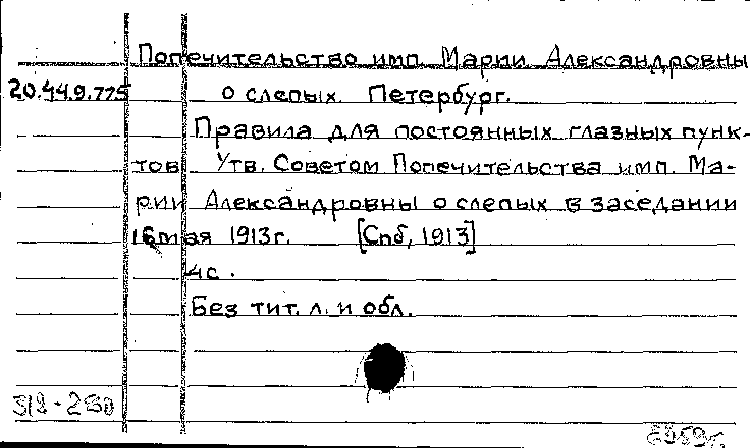 Попечительство имп. Марии Александровны
20.449.775 о слепых. Петербург.
Правила для постоянных глазных пунк-
тов Утв. Советом Попечительства имп. Ма-
рии Александровны о слепых в заседании
16 мая 1913 г. [Спб, 1913]
4с.
Без тит. л. и обл.